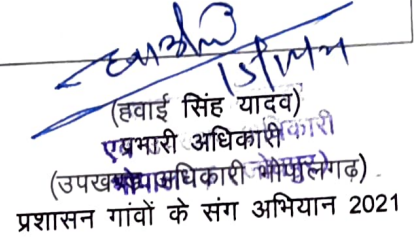 (हवाई सिंह यादव)
प्रभारी अधिकारी
(उपखण्ड अधिकारी भोपालगढ़)
प्रशासन गांवों के संग अभियान 2021